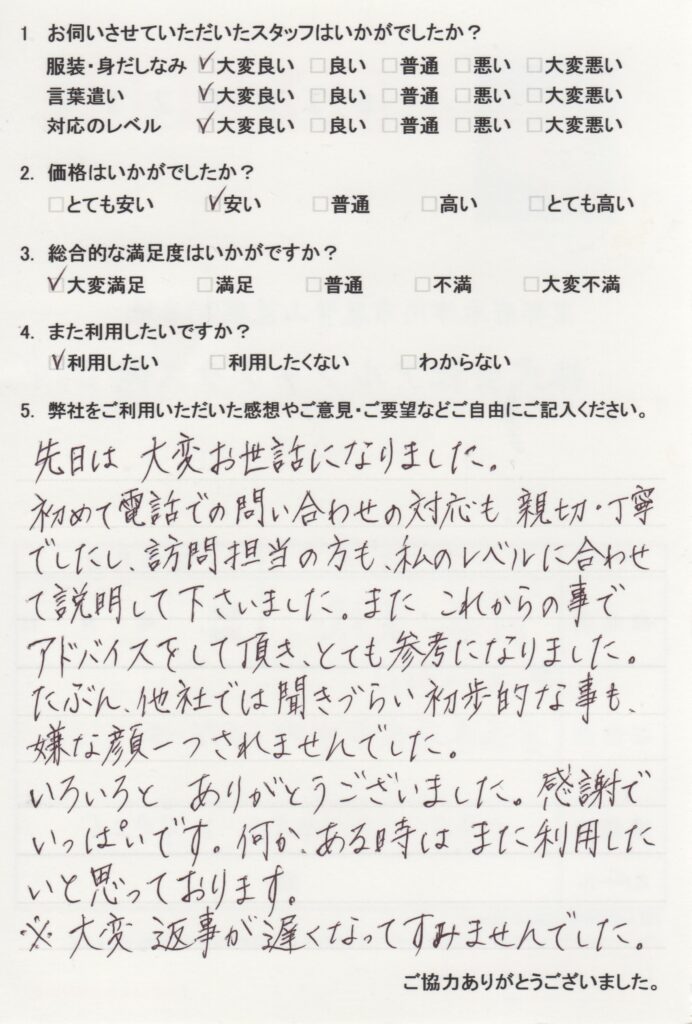 1 お伺いさせていただいたスタッフはいかがでしたか？
服装・身だしなみ ☑大変良い □良い □普通 □悪い □大変悪い
言葉遣い ☑大変良い □良い □普通 □悪い □大変悪い
対応のレベル ☑大変良い □良い □普通 □悪い □大変悪い
2. 価格はいかがでしたか？
□とても安い ☑安い □普通 □高い □とても高い
3. 総合的な満足度はいかがですか？
☑大変満足 □満足 □普通 □不満 □大変不満
4. また利用したいですか？
☑利用したい □利用したくない □わからない
5. 弊社をご利用いただいた感想やご意見・ご要望などご自由にご記入ください。
先日は 大変お世話になりました。
初めて電話での問い合わせの対応も 親切・丁寧
でしたし、訪問担当の方も、私のレベルに合わせ
て説明して下さいました。また これからの事で
アドバイスをして頂き、とても参考になりました。
たぶん、他社では聞きづらい初歩的な事も、
嫌な顔一つされませんでした。
いろいろと ありがとうございました。感謝で
いっぱいです。何か、ある時は また利用した
いと思っております。
※ 大変 返事が遅くなってすみませんでした。
ご協力ありがとうございました。